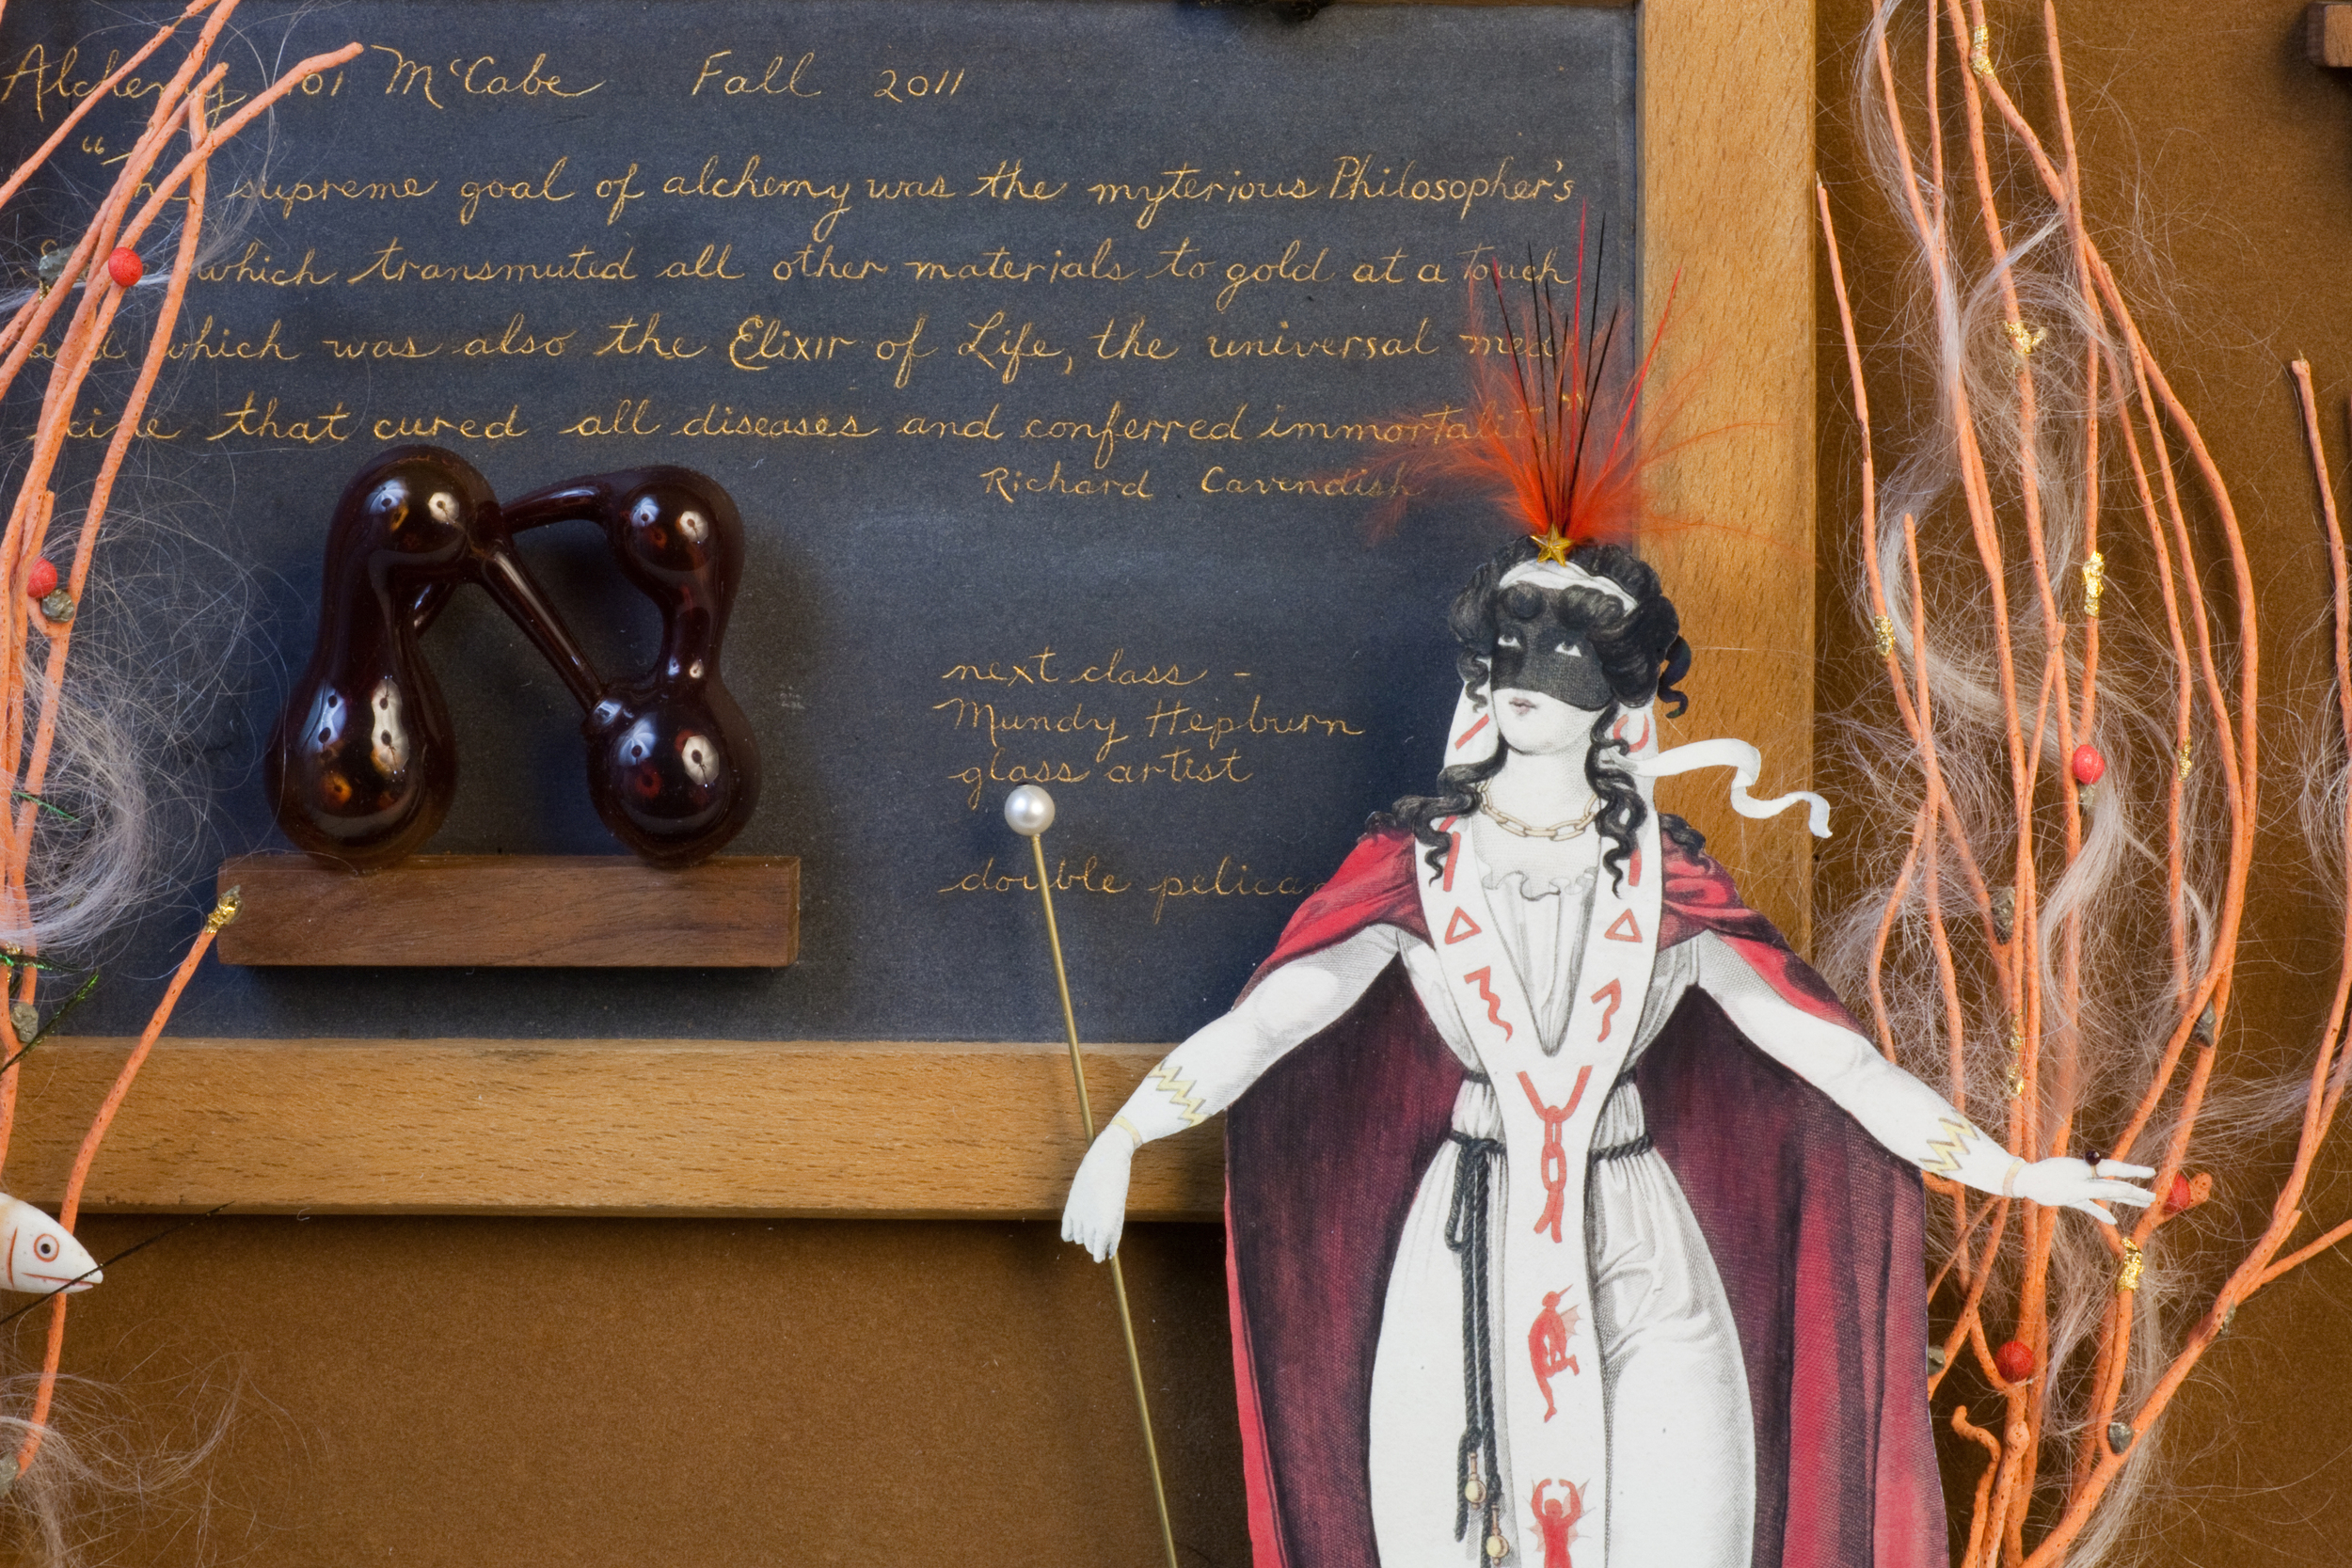 Alchemy 101 McCabe Fall 2011
"The supreme goal of alchemy was the myterious Philosopher's
which transmuted all other materials to gold at a touch
and which was also the Elixir of Life, the universal medi
cine that cured all diseases and conferred immortality"
Richard Cavendish
next class -
Mundy Hepburn
glass artist
double pelican